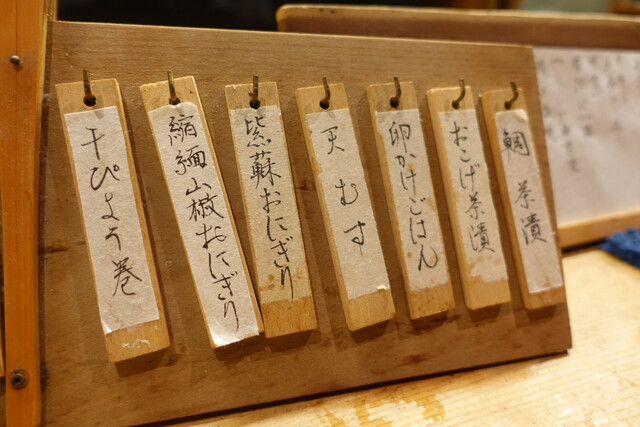 鯛茶漬
おこげ茶漬
卵かけごはん
天むす
紫蘇おにぎり
縮緬山椒おにぎり
干ぴょう巻